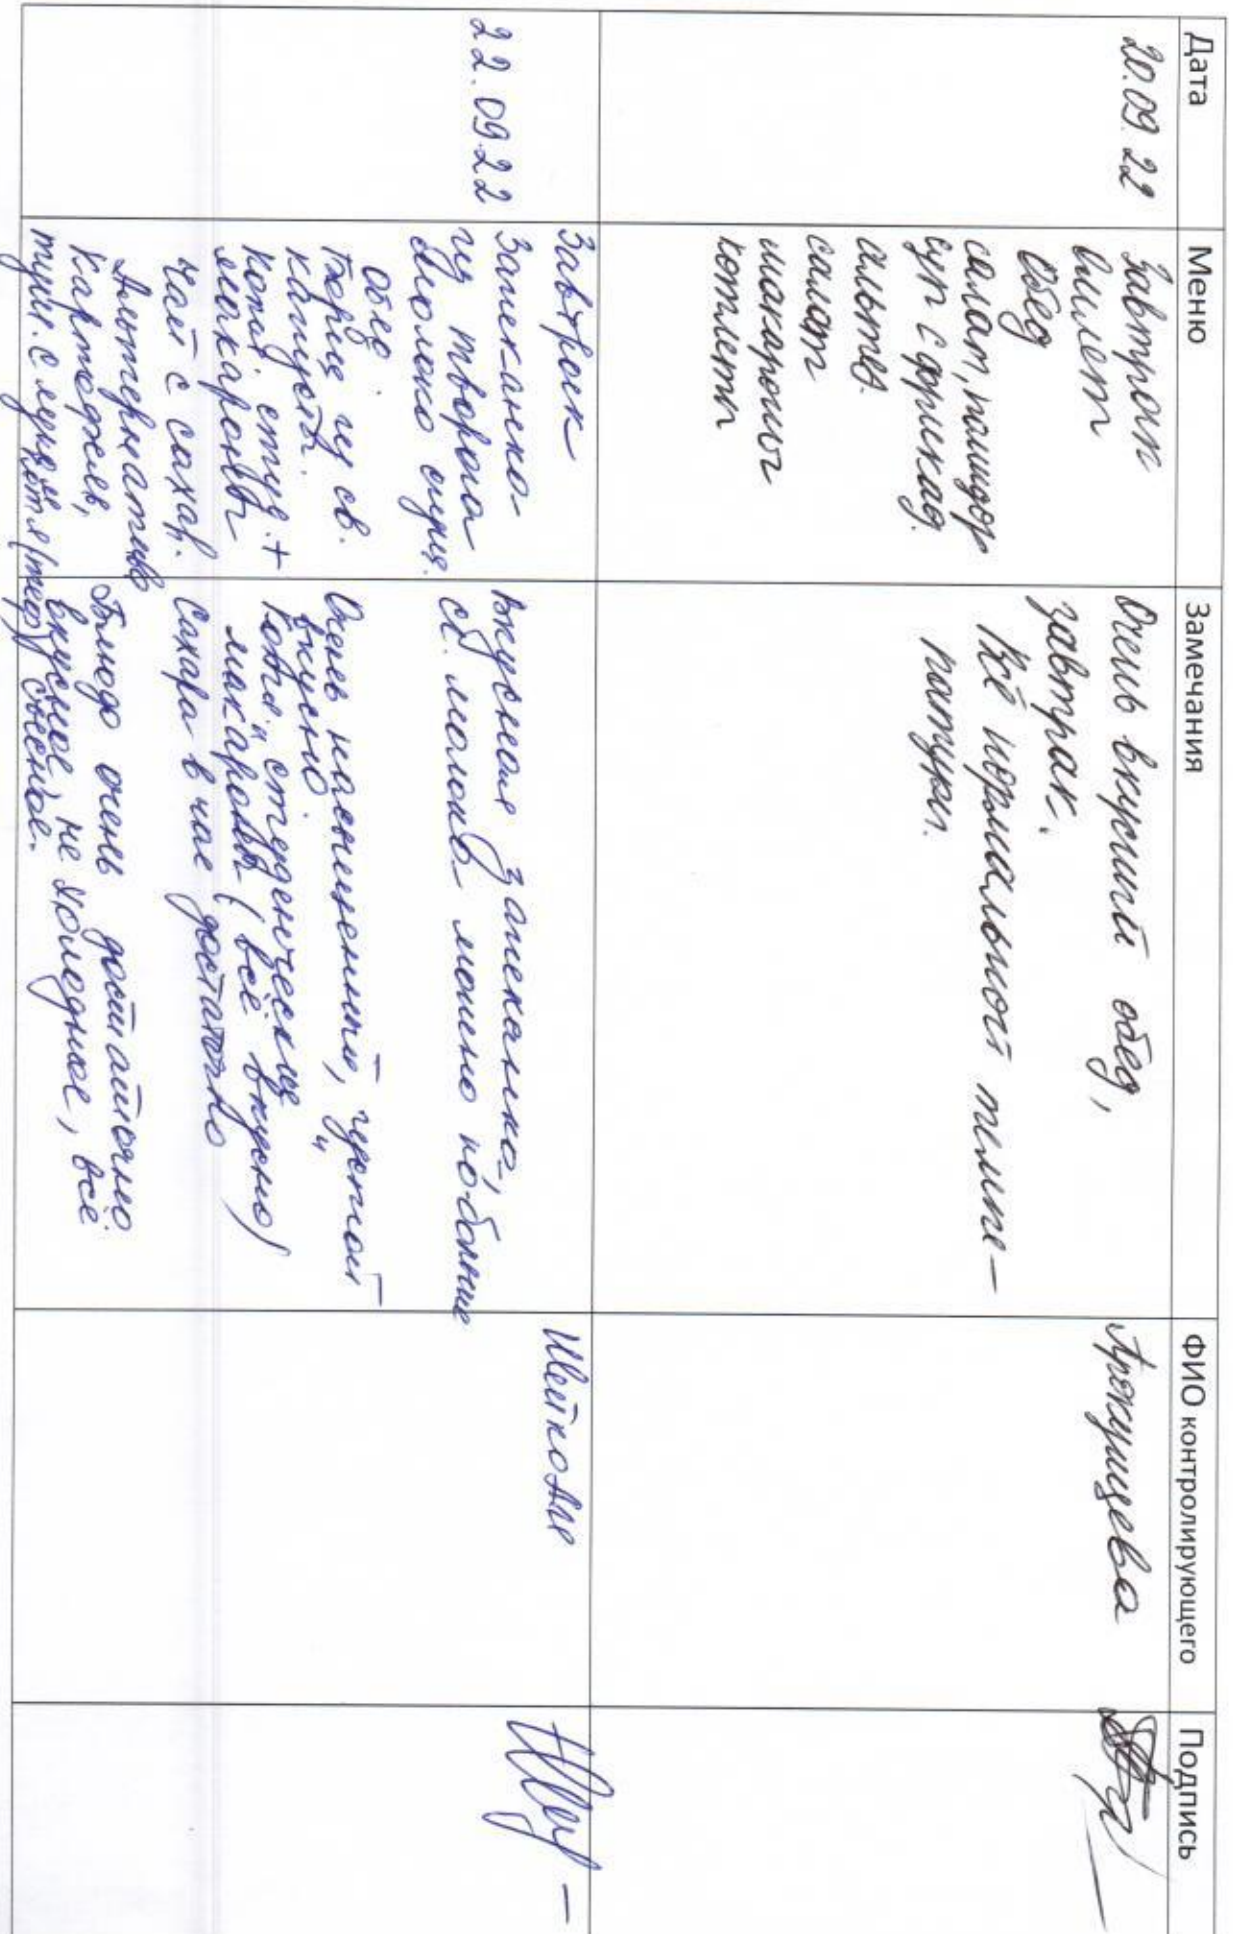 Дата
Меню
Замечания
ФИО контролирующего
Подпись
20.09.22
Завтрак
Омлет
Обед
салат, помидор
суп с фрикад.
салат
макароны
котлета
Очень вкусный обед,
завтрак.
Всё нормальной темпе-
ратуры.
22.09.22
Завтрак
Запеканка
из творога
молоко сгущ.
обед
Борщ из св.
капусты.
Котл. студ. +
макароны
чай с сахар.
Альтернатива
картофель,
тущ. с луком
Вкусная запеканка,
сг. молока можно побольше
Очень насыщенный, густой
вкусно
Котл. "студенческие"
макароны (всё вкусно)
Сахара в чае достаточно
Блюдо очень достаточно
вкусное, не холодное, всё
съесное.